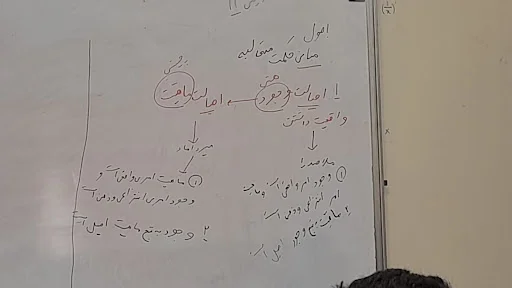 اصول
مبانی حکمت متعالیه
۱ اصالت وجود ← اصالت ماهیت
هستی
واقعیت داشتن
ملاصدرا
① وجود امر واقعی است و ماهیت
امر انتزاعی و ذهنی است
۲ ماهیت به تبع وجود اصیل است
میرداماد
① ماهیت امری واقعی است و
وجود امری انتزاعی و ذهنی است
۲ وجود به تبع ماهیت اصیل است